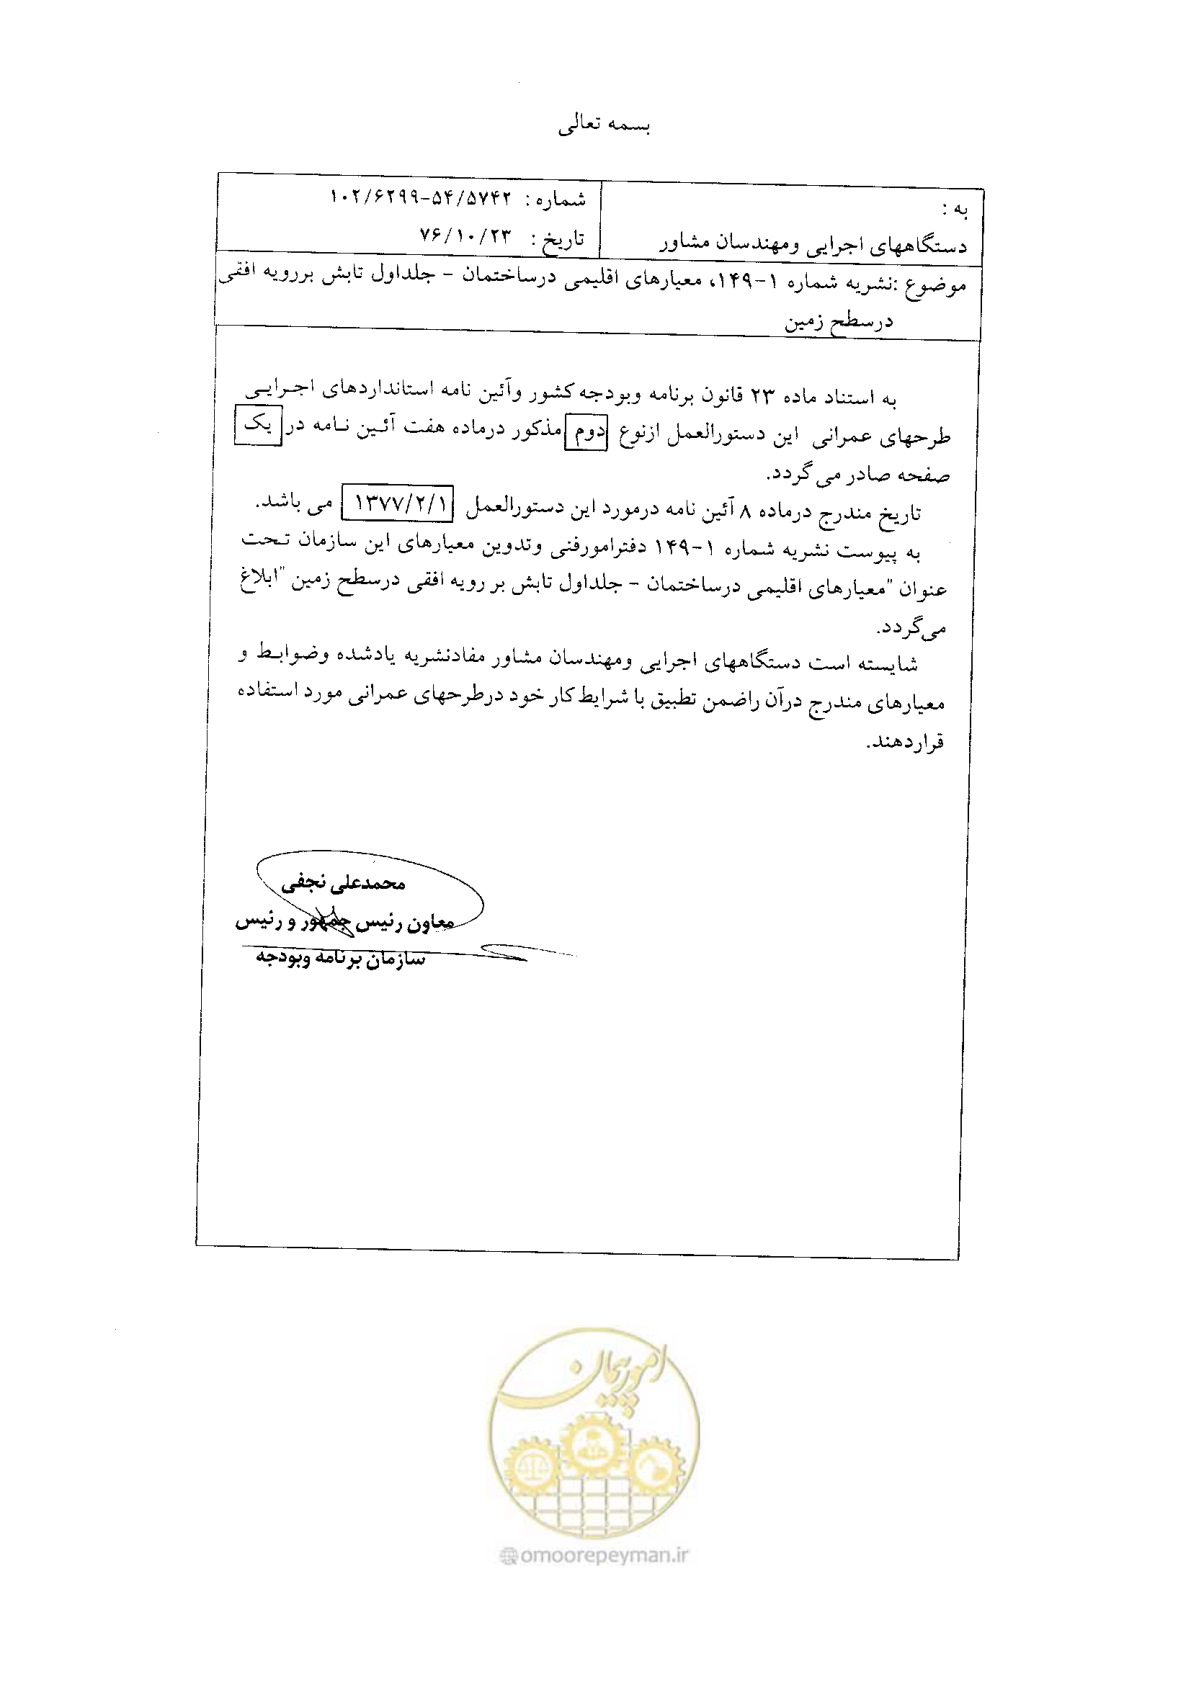 بسمه تعالی
به :
دستگاههای اجرایی ومهندسان مشاور
شماره : ۱۰۲/۶۲۹۹-۵۴/۵۷۴۲
تاریخ : ۷۶/۱۰/۲۳
موضوع :نشریه شماره ۱-۱۴۹، معیارهای اقلیمی درساختمان - جلداول تابش بررویه افقی
درسطح زمین
به استناد ماده ۲۳ قانون برنامه وبودجه کشور وآئین نامه استانداردهای اجرایی
طرحهای عمرانی این دستورالعمل ازنوع دوم مذکور درماده هفت آئین نامه در یک
صفحه صادر می‌گردد.
تاریخ مندرج درماده ۸ آئین نامه درمورد این دستورالعمل ۱۳۷۷/۲/۱ می باشد.
به پیوست نشریه شماره ۱-۱۴۹ دفترامورفنی وتدوین معیارهای این سازمان تحت
عنوان "معیارهای اقلیمی درساختمان - جلداول تابش بر رویه افقی درسطح زمین "ابلاغ
می‌گردد.
شایسته است دستگاههای اجرایی ومهندسان مشاور مفادنشریه یادشده وضوابط و
معیارهای مندرج درآن راضمن تطبیق با شرایط کار خود درطرحهای عمرانی مورد استفاده
قراردهند.
محمدعلی نجفی
معاون رئیس جمهور و رئیس
سازمان برنامه وبودجه
امور پیمان
omoorepeyman.ir